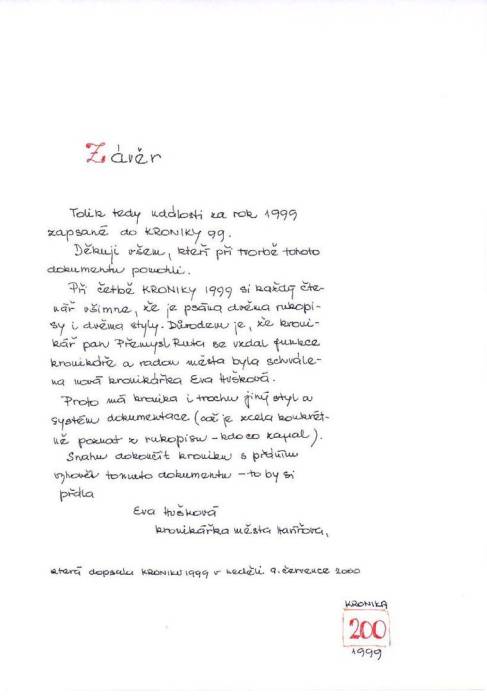 Závěr
Tolik tedy události za rok 1999
zapsané do KRONIKY 99.
Děkuji všem, kteří při tvorbě tohoto
dokumentu pomohli.
Při četbě KRONIKY 1999 si každý čte-
nář všimne, že je psána dvěma rukopi-
sy i dvěma styly. Důvodem je, že kroni-
kář pan Přemysl Ruta se vzdal funkce
kronikáře a radou města byla schvále-
na nová kronikářka Eva Hušková.
Proto má kronika i trochu jiný styl a
systém dokumentace (což je zcela konkrét-
ně poznat z rukopisu - kdo co zapsal).
Snahu dokončit kroniku s přáním
vyhovět tomuto dokumentu - to by si
přála
Eva Hušková
kronikářka města
která dopsala KRONIKU 1999 v neděli 9. července 2000
KRONIKA
200
1999